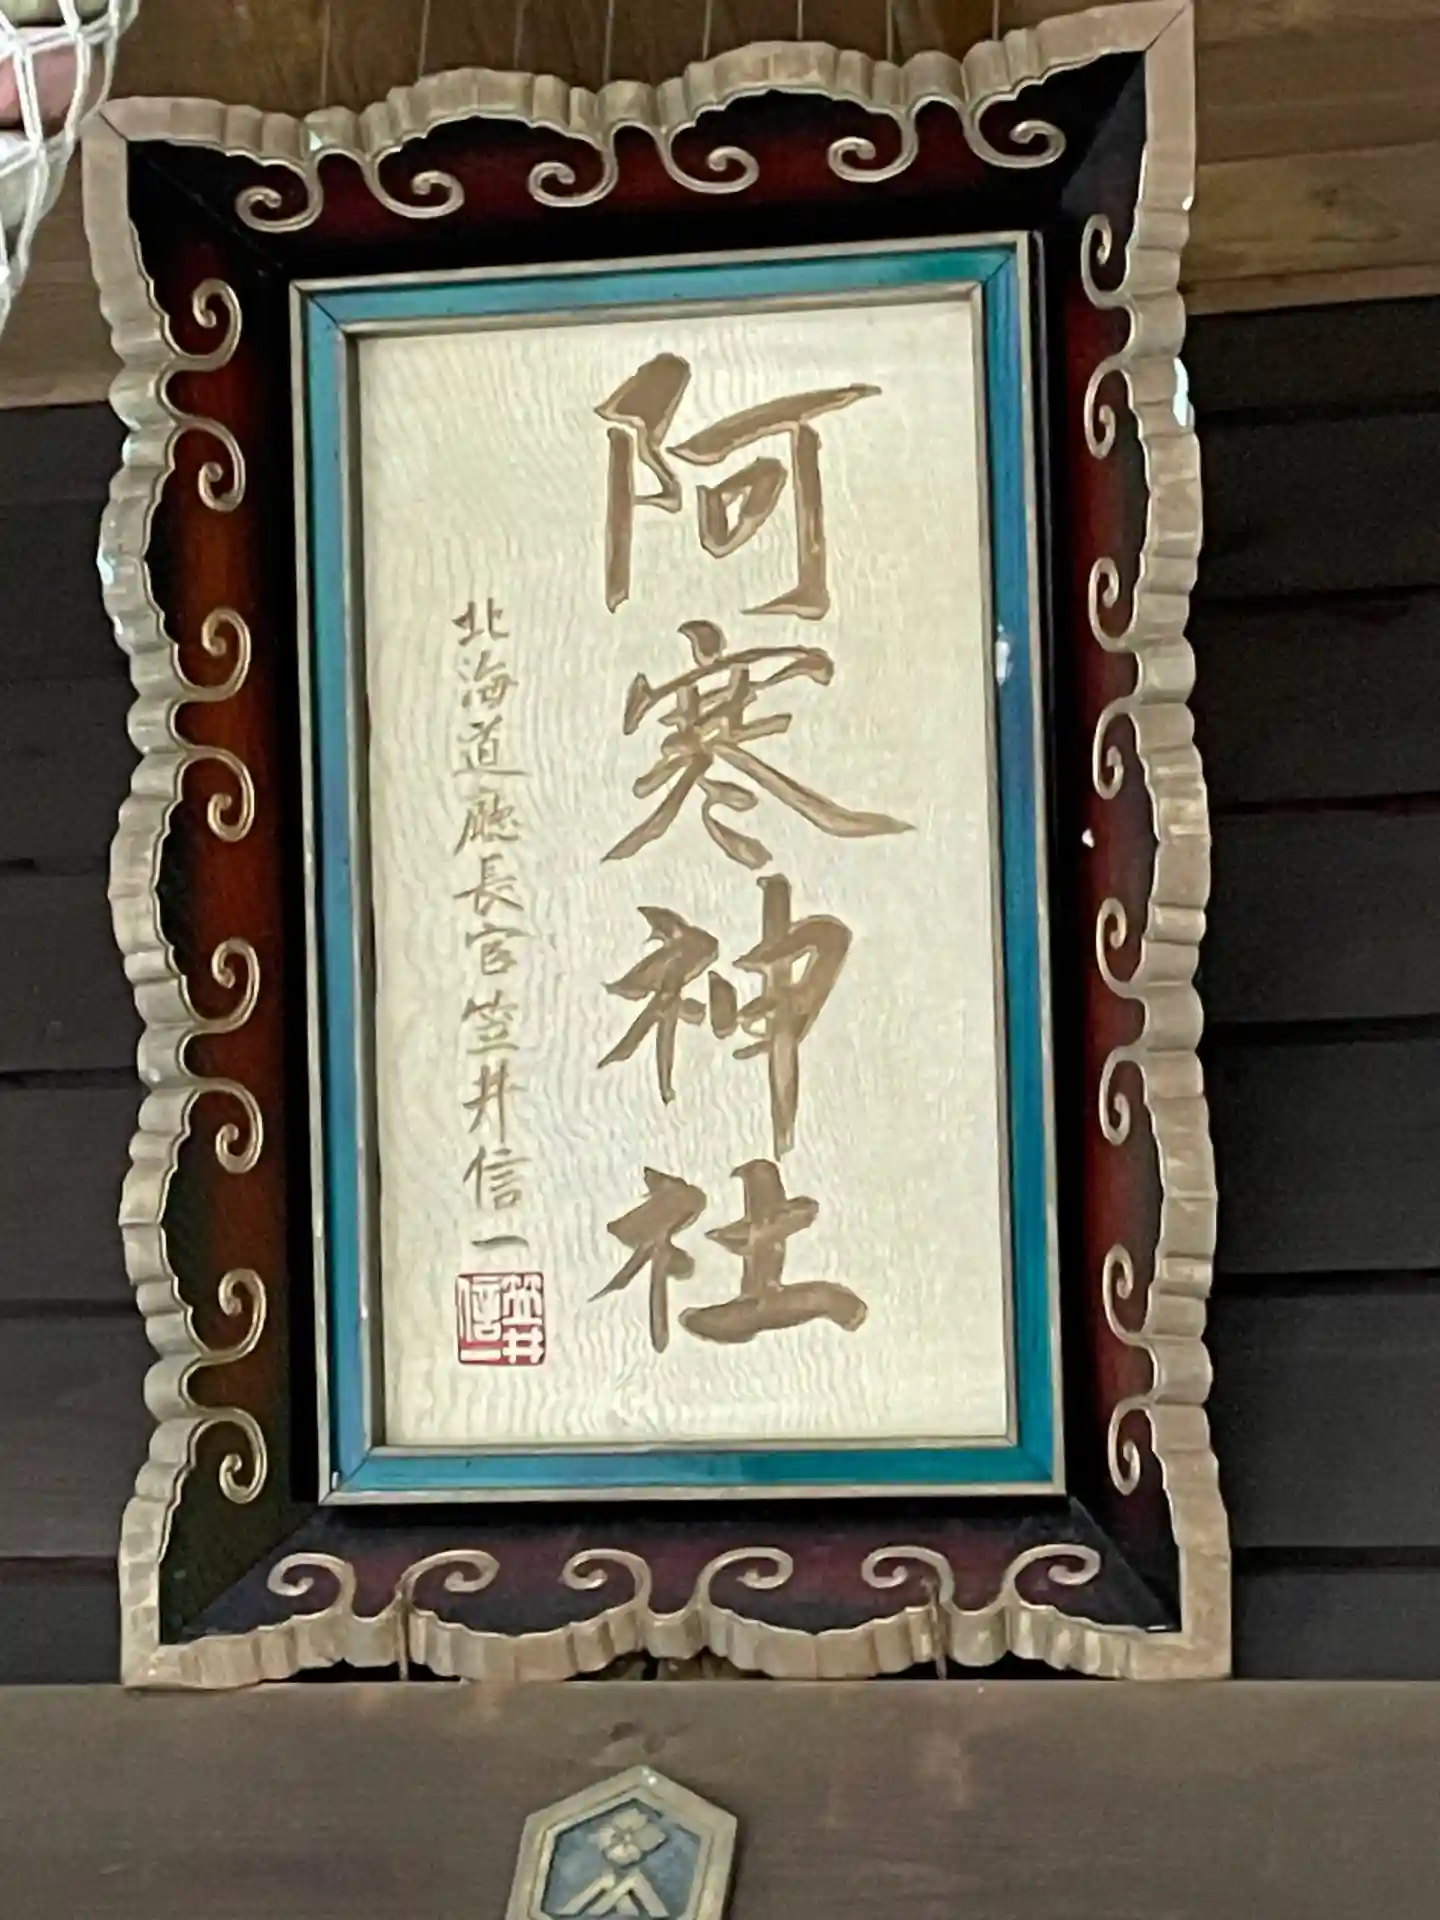 阿寒神社
北海道廳長官笠井信一
笠井
信一